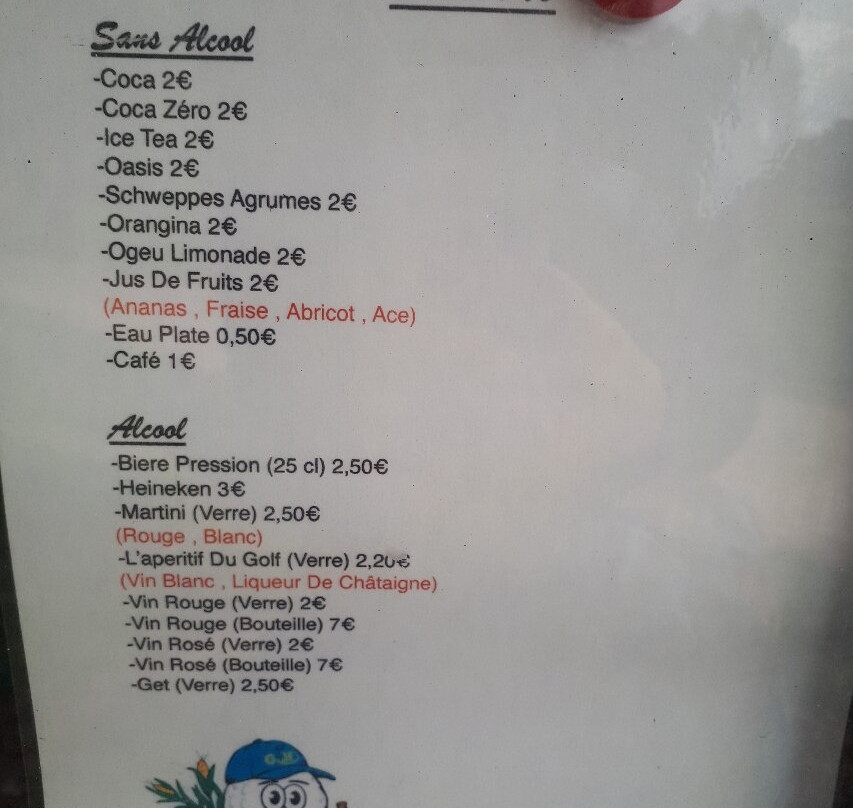 Sans Alcool
-Coca 2€
-Coca Zéro 2€
-Ice Tea 2€
-Oasis 2€
-Schweppes Agrumes 2€
-Orangina 2€
-Ogeu Limonade 2€
-Jus De Fruits 2€
(Ananas , Fraise , Abricot , Ace)
-Eau Plate 0,50€
-Café 1€
Alcool
-Biere Pression (25 cl) 2,50€
-Heineken 3€
-Martini (Verre) 2,50€
(Rouge , Blanc)
-L'aperitif Du Golf (Verre) 2,20€
(Vin Blanc , Liqueur De Châtaigne)
-Vin Rouge (Verre) 2€
-Vin Rouge (Bouteille) 7€
-Vin Rosé (Verre) 2€
-Vin Rosé (Bouteille) 7€
-Get (Verre) 2,50€